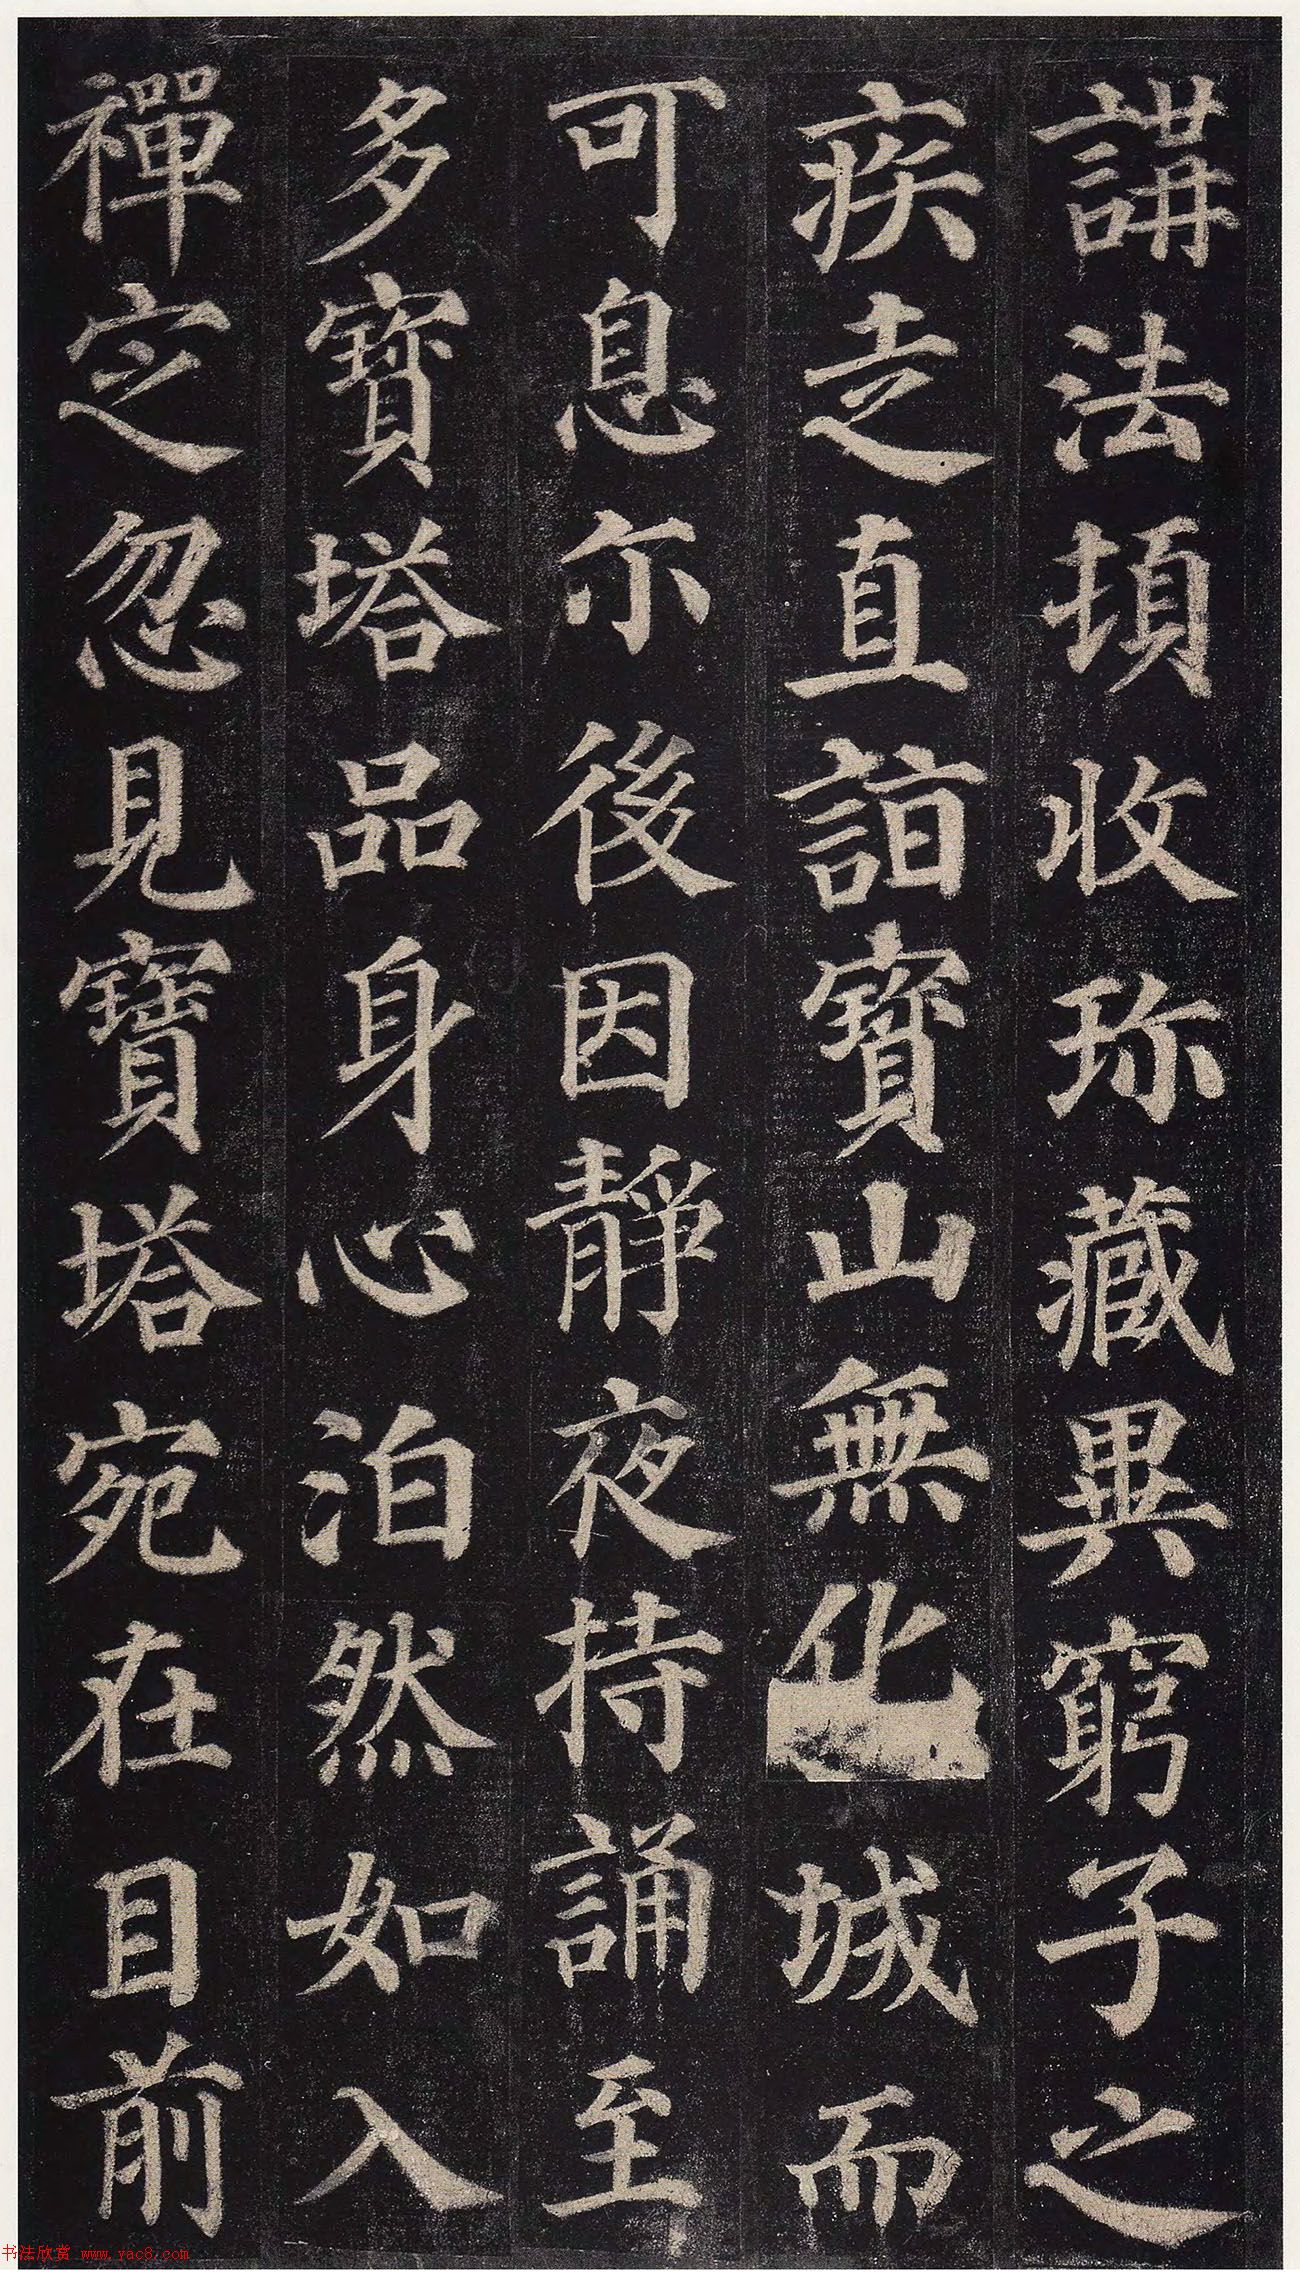 講法頓收珎藏異窮子之
疾走直詣寶山無化城而
可息尒後因靜夜持誦至
多寶塔品身心泊然如入
禪定忽見寶塔宛在目前
书法欣赏 www.yac8.com